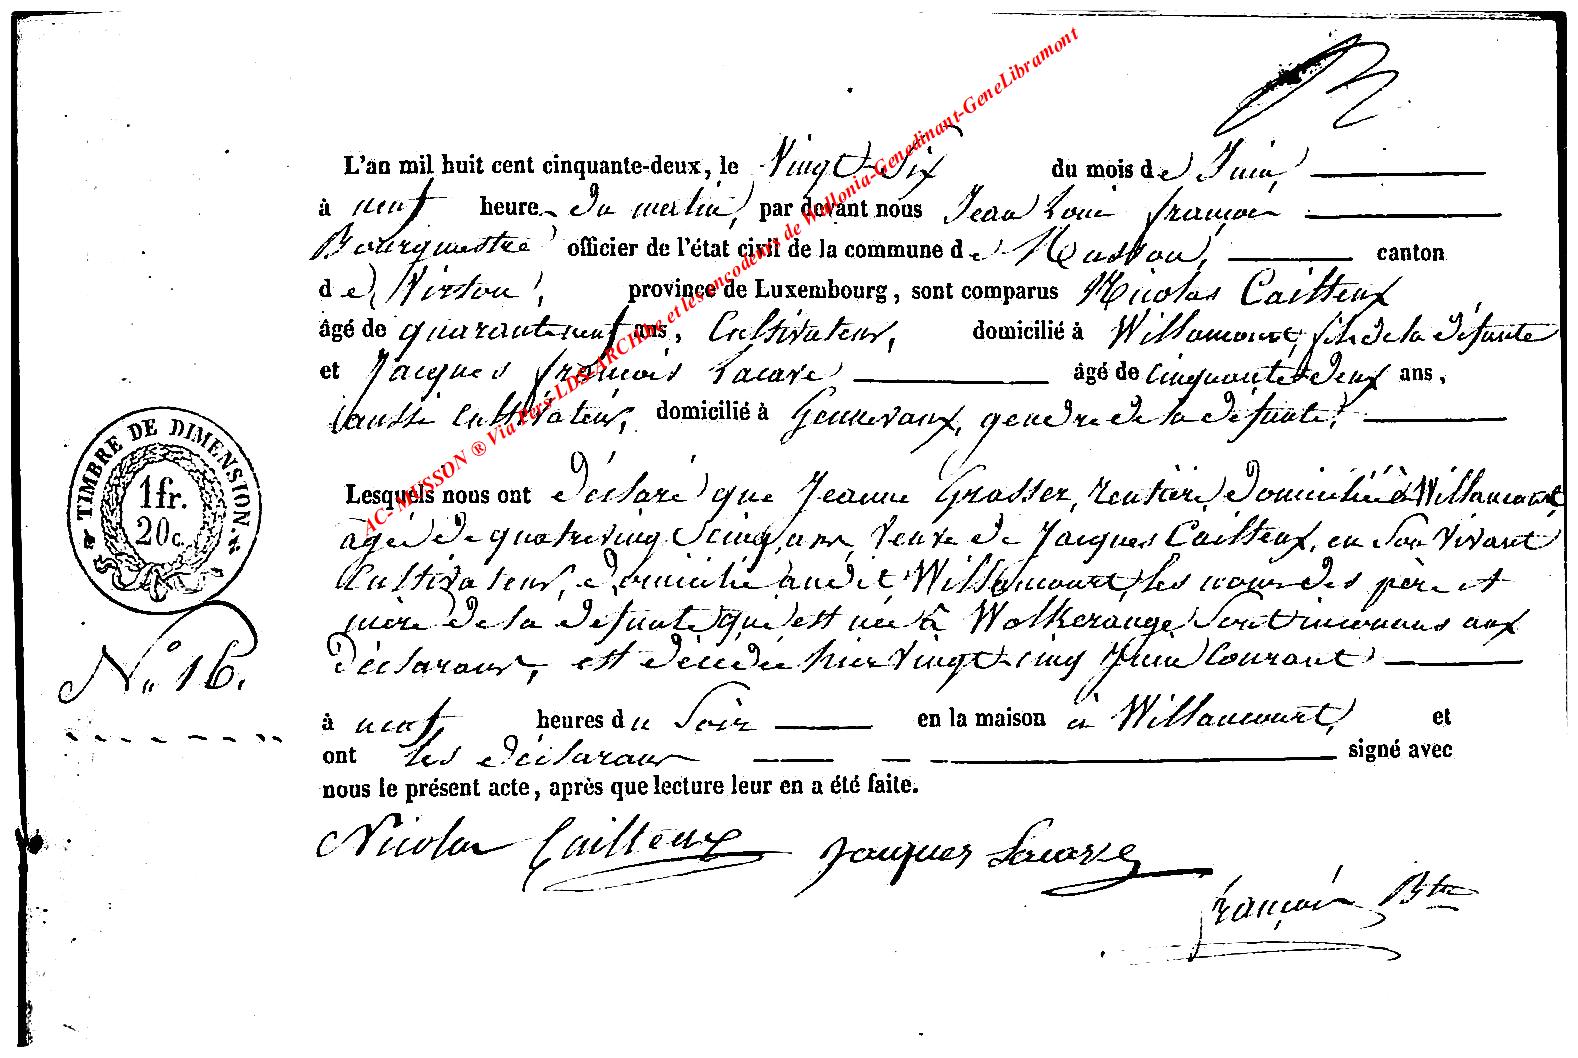 L'an mil huit cent cinquante-deux, le Vingt-Six du mois de Juin,
à neuf heure du matin, par devant nous Jean Louis françois
Bourgmestre officier de l'état civil de la commune de Musson, canton
de Virton, province de Luxembourg, sont comparus Nicolas Cailteux
âgé de quaranteneuf ans, Cultivateur, domicilié à Willancourt, fils de la défunte
et Jacques françois Lacave âgé de cinquante deux ans,
aussi cultivateur, domicilié à Gennevaux, gendre de la défunte,
Lesquels nous ont déclaré que Jeanne Grosser, rentière, domiciliée à Willancourt,
agée de quatrevingt cinq ans, Veuve de Jacques Cailteux, en Son Vivant
Cultivateur, domicilié audit Willancourt, les noms des père et
mère de la défunte qui est née à Wolkerange Sont inconnus aux
déclarans, est décédée hier vingt-cinq Juin Courant
à neuf heures du Soir en la maison à Willancourt, et
ont les déclarans signé avec
nous le présent acte, après que lecture leur en a été faite.
Nicolas Cailteux Jacques Lacave
françois Btre
TIMBRE DE DIMENSION.
1fr.
20c.
N° 16.
AC- MUSSON ® Via Pers-LDS-ARCHive et les encodeurs de Wallonia-Genedinant-GeneLibramont